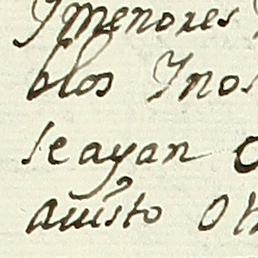 Ymenores
blos Ynos
seayan
auisto